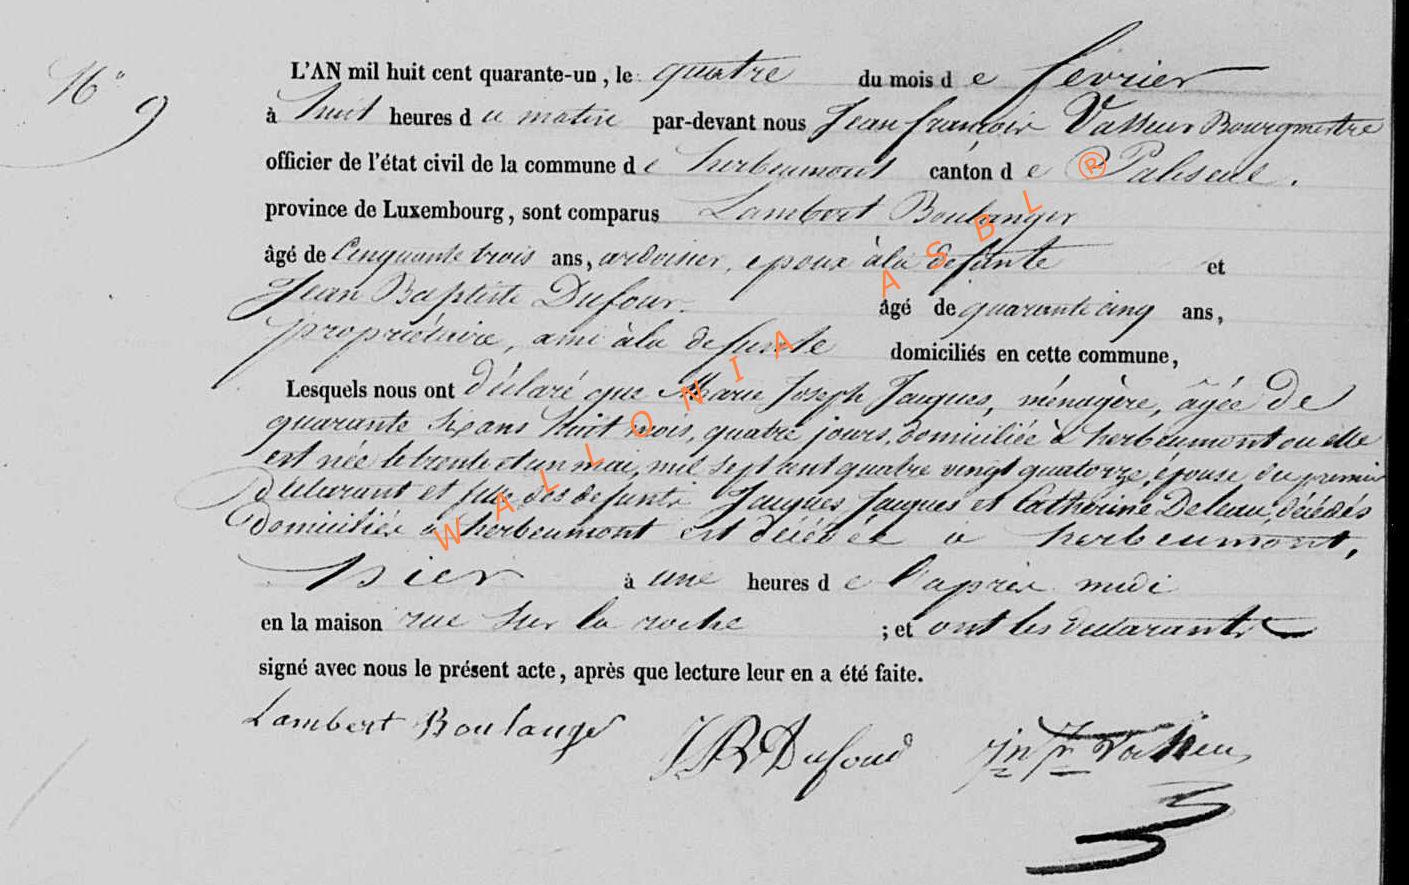 N° 9
L'AN mil huit cent quarante-un, le quatre du mois de fevrier
à huit heures du matin par-devant nous Jean françois Vasseur Bourgmestre
officier de l'état civil de la commune de herbeumont canton de Paliseul.
province de Luxembourg, sont comparus Lambert Boulanger
âgé de Cinquante trois ans, ardoisier, epoux à la defunte et
Jean Baptiste Dufour. âgé de quarante cinq ans,
propriétaire, ami à la defunte domiciliés en cette commune,
Lesquels nous ont déclaré que Marie Joseph Jauques, ménagère, âgée De
quarante six ans huit mois, quatre jours, domiciliée à herbeumont ou elle
est née le trente et un mai, mil sept cent quatre vingt quatorze, épouse du premier
déclarant et fille des defunts Jauques Jauques et Catherine Deleau, décédés
domiciliés à herbeumont est décédée a herbeumont,
hier à une heures de l'après midi
en la maison rue sur la roche ; et ont les declarants
signé avec nous le présent acte, après que lecture leur en a été faite.
Lambert Boulanger JB Dufour Jn fr Vasseur
WALLONIA ASBL ®